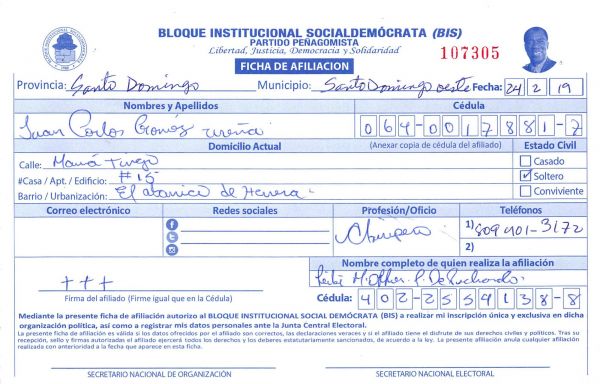 BLOQUE INSTITUCIONAL SOCIALDEMÓCRATA (BIS)
PARTIDO PEÑAGOMISTA
Libertad, Justicia, Democracia y Solidaridad
107305
FICHA DE AFILIACION
Provincia: Santo Domingo Municipio: Santo Domingo oeste Fecha: 24 2 19
Nombres y Apellidos Cédula
Juan Carlos Gomez ureña 064-0017881-7
Domicilio Actual (Anexar copia de cédula del afiliado) Estado Civil
Calle: María Casado
#Casa / Apt. / Edificio: #15 Soltero
Barrio / Urbanización: El abanico de Herrera. Conviviente
Correo electrónico Redes sociales Profesión/Oficio Teléfonos
1) 809 401-3172
2)
Nombre completo de quien realiza la afiliación
+++
Firma del afiliado (Firme igual que en la Cédula) Cédula: 402-2559138-8
Mediante la presente ficha de afiliación autorizo al BLOQUE INSTITUCIONAL SOCIAL DEMÓCRATA (BIS) a realizar mi inscripción única y exclusiva en dicha
organización política, así como a registrar mis datos personales ante la Junta Central Electoral.
La presente ficha de afiliación es válida si los datos ofrecidos por el afiliado son correctas, las declaraciones veraces y si el afiliado tiene el disfrute de sus derechos civiles y políticos. Tras su
recepción, sello y firmas autorizadas el afiliado ejercerá todos los derechos y los deberes estatutariamente sancionados, de acuerdo a la ley. La presente afiliación anula cualquier afiliación
realizada con anterioridad a la fecha que aparece en esta ficha.
SECRETARIO NACIONAL DE ORGANIZACIÓN SECRETARIO NACIONAL ELECTORAL